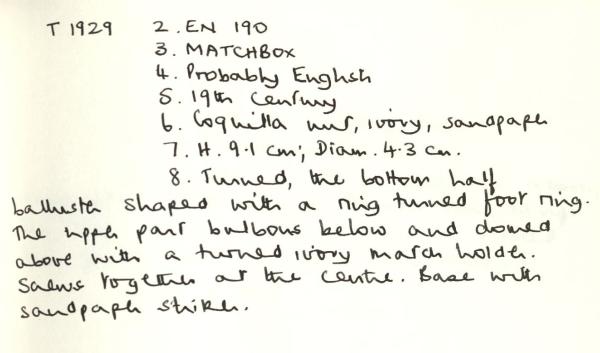 T 1929 2. EN 190
3. MATCHBOX
4. Probably English
5. 19th Century
6. Coquilla nut, ivory, sandpaper
7. H. 9.1 cm; Diam. 4.3 cm.
8. Turned, the bottom half
balluster shaped with a ring turned foot ring.
The upper part bulbous below and domed
above with a turned ivory match holder.
Screws together at the centre. Base with
sandpaper striker.